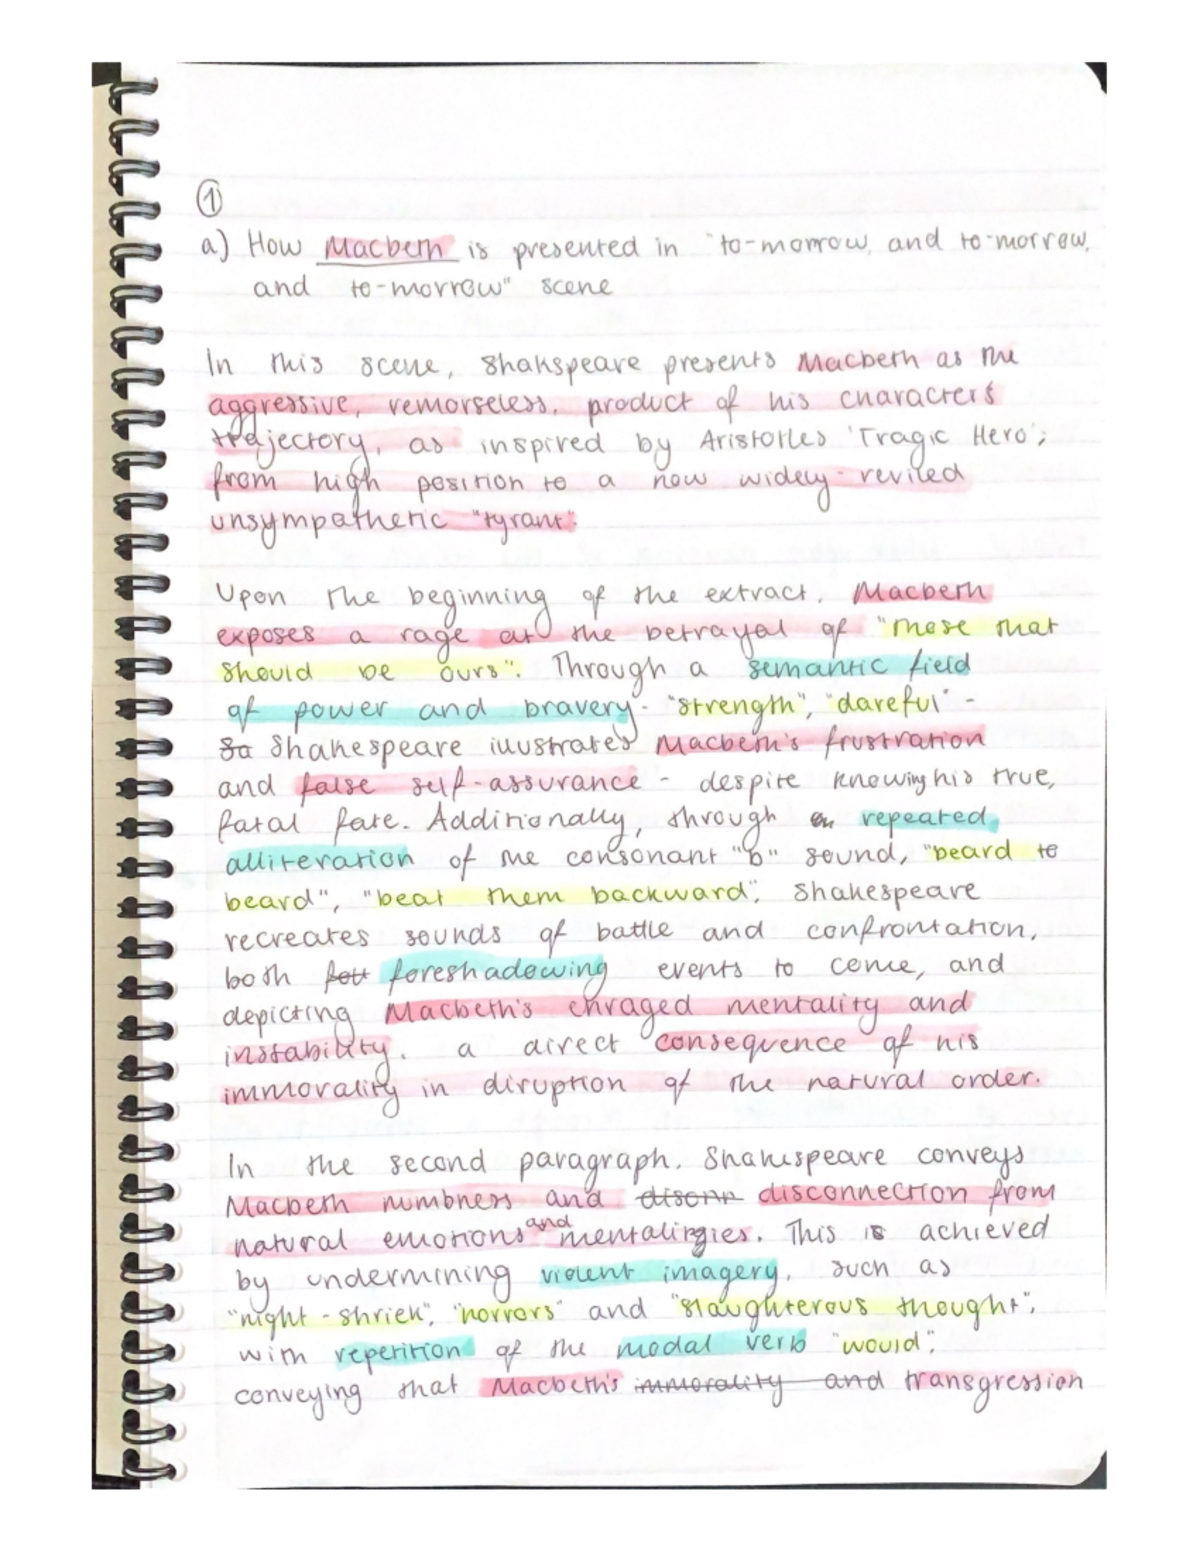 1
a) How Macbeth is presented in "to-morrow, and to-morrow,
and to-morrow" scene
In this scene, Shakspeare presents Macbeth as the
aggressive, remorseless, product of his character's
trajectory, as inspired by Aristotles 'Tragic Hero';
from high position to a now widely-reviled
unsympathetic "tyrant".
Upon the beginning of the extract, Macbeth
exposes a rage at the betrayal of "those that
should be ours". Through a semantic field
of power and bravery - "strength", "dareful" -
So Shakespeare illustrates Macbeth's frustration
and false self-assurance - despite knowing his true,
fatal fate. Additionally, through repeated
alliteration of the consonant "b" sound, "beard to
beard", "beat them backward", Shakespeare
recreates sounds of battle and confrontation,
both foreshadowing events to come, and
depicting Macbeth's enraged mentality and
instability, a direct consequence of his
immorality in diruption of the natural order.
In the second paragraph, Shakespeare conveys
Macbeth numbness and disconn disconnection from
natural emotions and mentalities. This is achieved
by undermining violent imagery, such as
"night-shriek", "horrors" and "slaughterous thought",
with repetition of the modal verb "would",
conveying that Macbeth's immorality and transgression